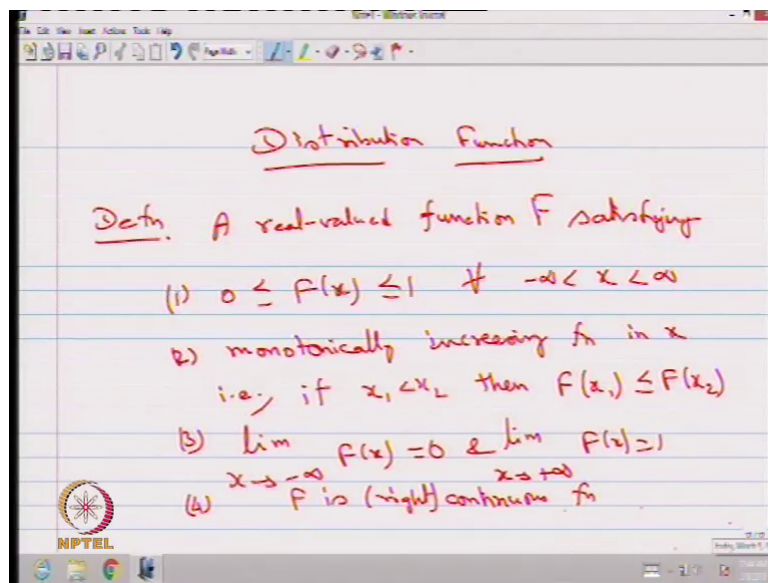 Note1 - Windows Journal
File Edit View Insert Actions Tools Help
Page Width
Distribution Function
Defn. A real-valued function F satisfying
(1) 0 ≤ F(x) ≤ 1 ∀ -∞ < x < ∞
(2) monotonically increasing fn in x
i.e., if x₁ < x₂ then F(x₁) ≤ F(x₂)
(3) lim x→-∞ F(x) = 0 & lim x→+∞ F(x) = 1
(4) F is (right) continuous fn
NPTEL